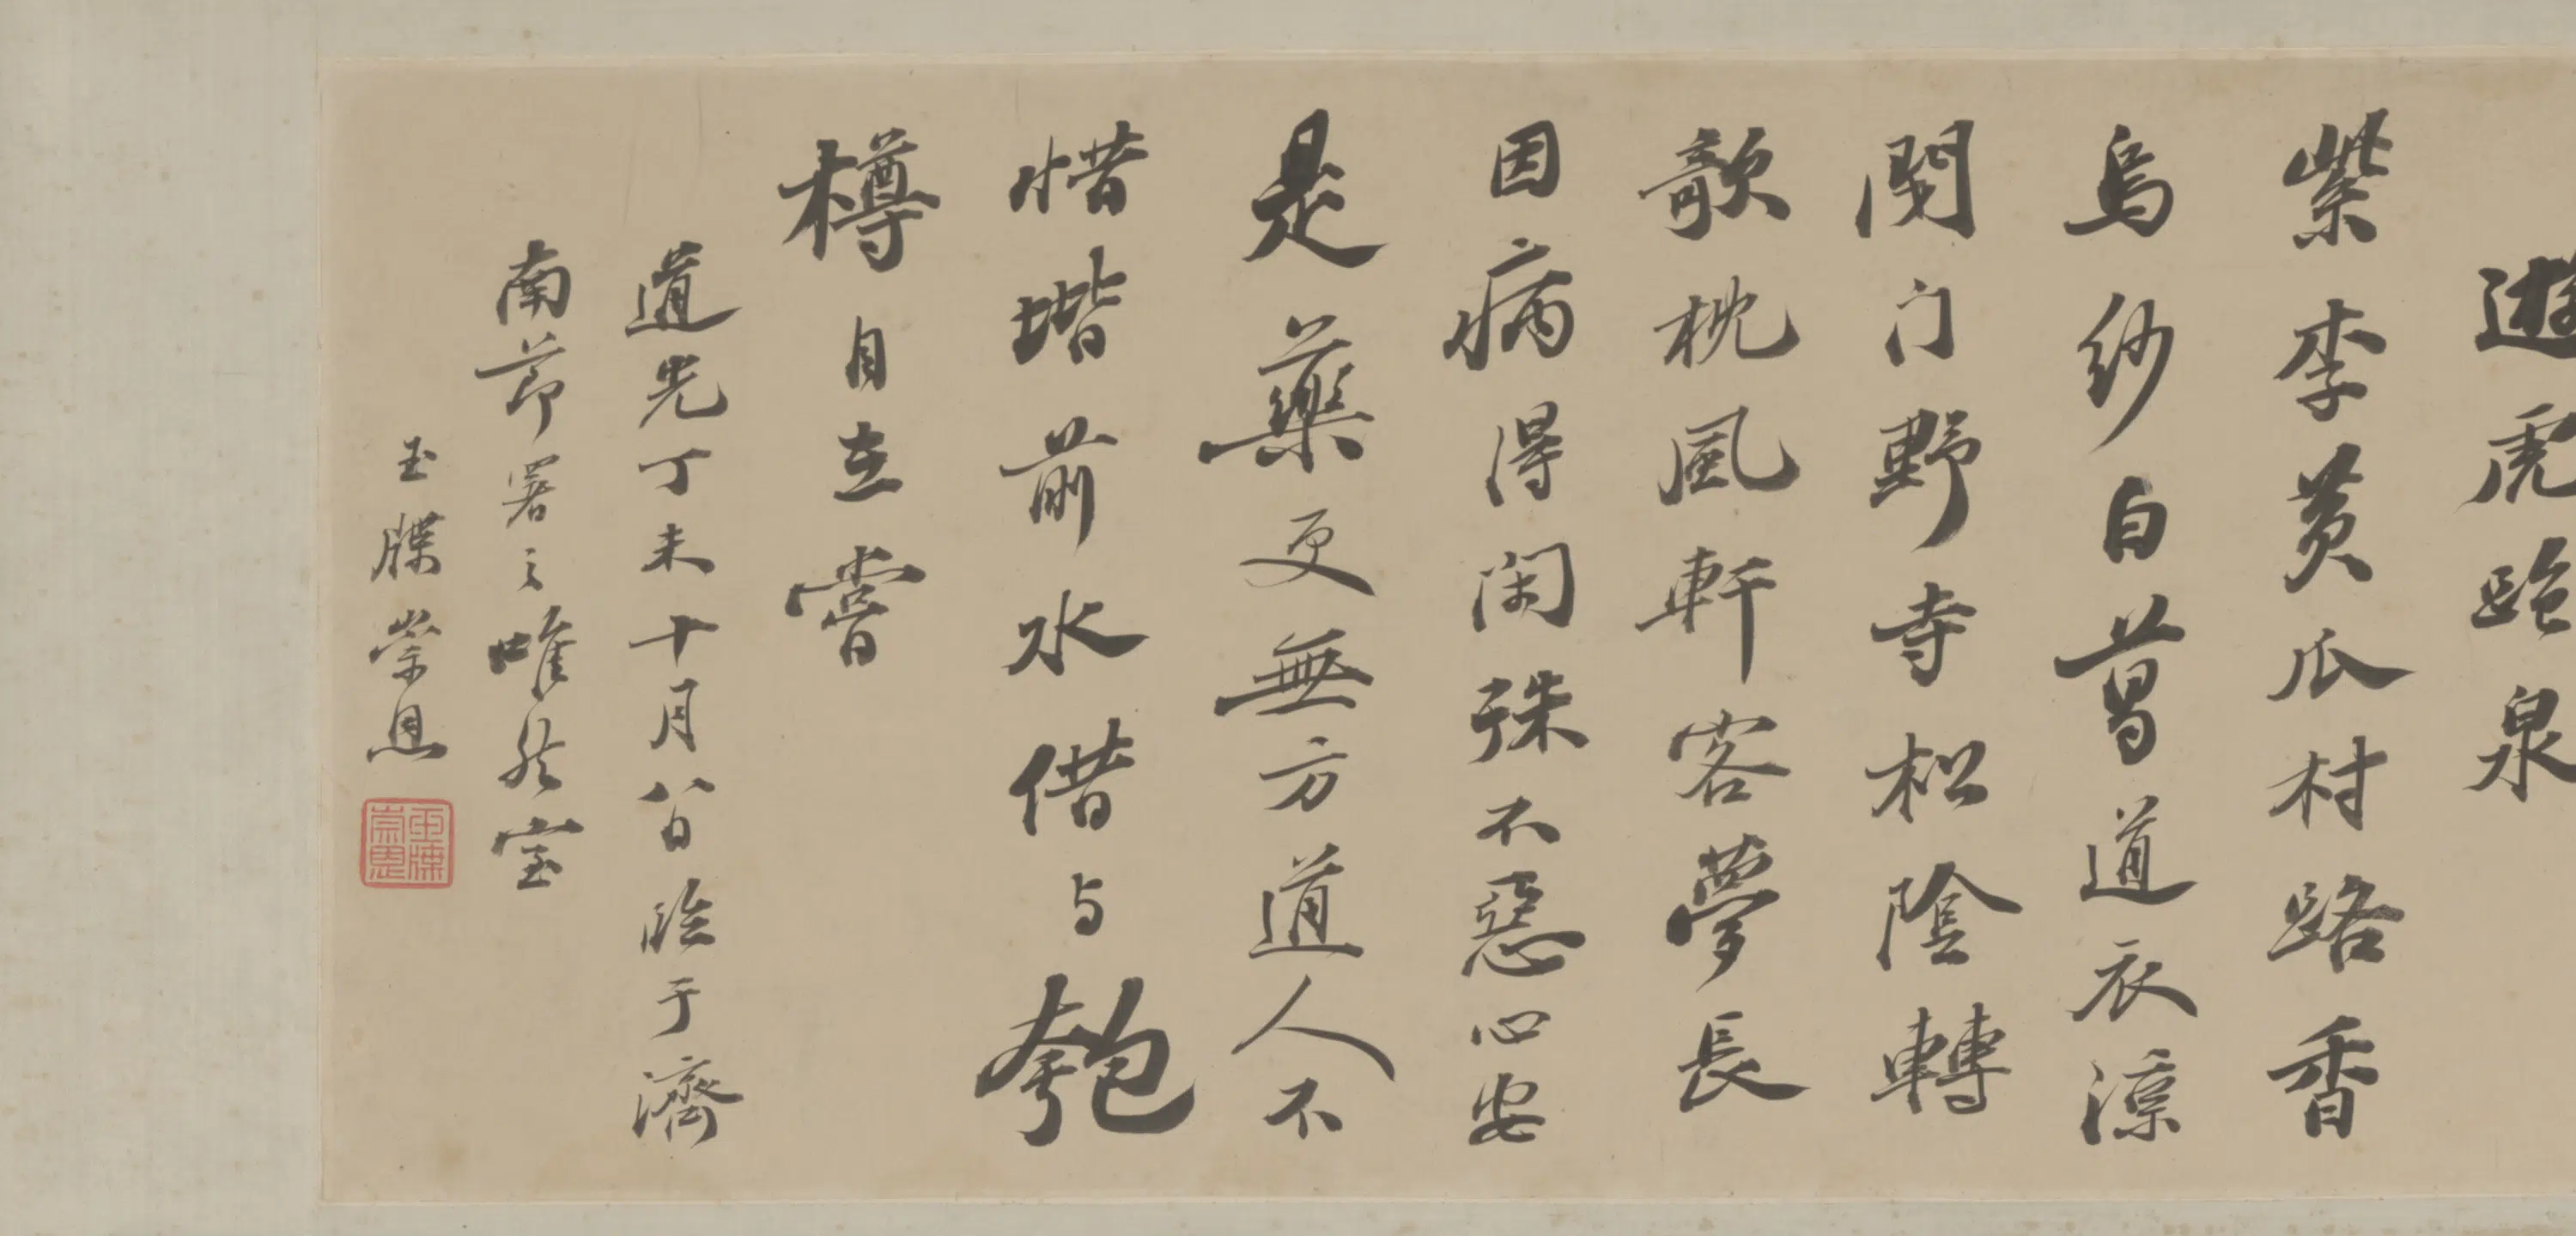 遊虎跑泉
紫李黃瓜村路香
烏紗白葛道衣涼
閉门野寺松陰轉
欹枕風軒客夢長
因病得閑殊不惡心安
是藥更無方道人不
惜堦前水借与匏
樽自在嘗
道光丁未十月八日臨于濟
南節署之唯然室
玉牒崇恩
玉牒崇恩